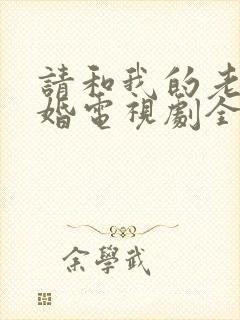 請和我的老
婚電視劇全
余學武